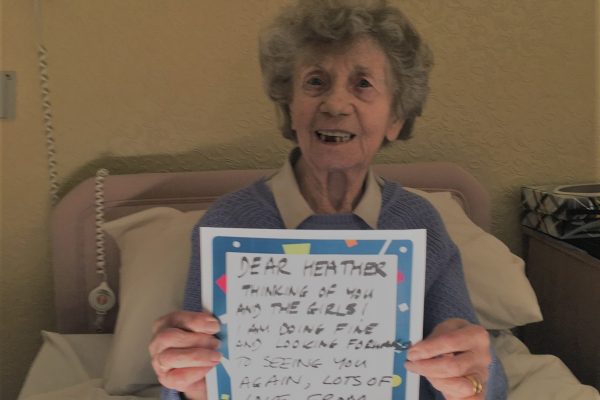 DEAR HEATHER
THINKING OF YOU
AND THE GIRLS!
I AM DOING FINE
AND LOOKING FORWARD
TO SEEING YOU
AGAIN, LOTS OF
LOVE FROM